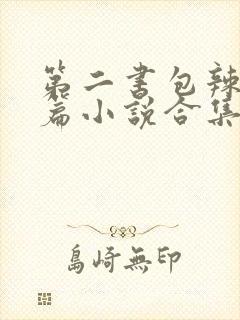 第二書包辣
篇小說合集
島崎無印